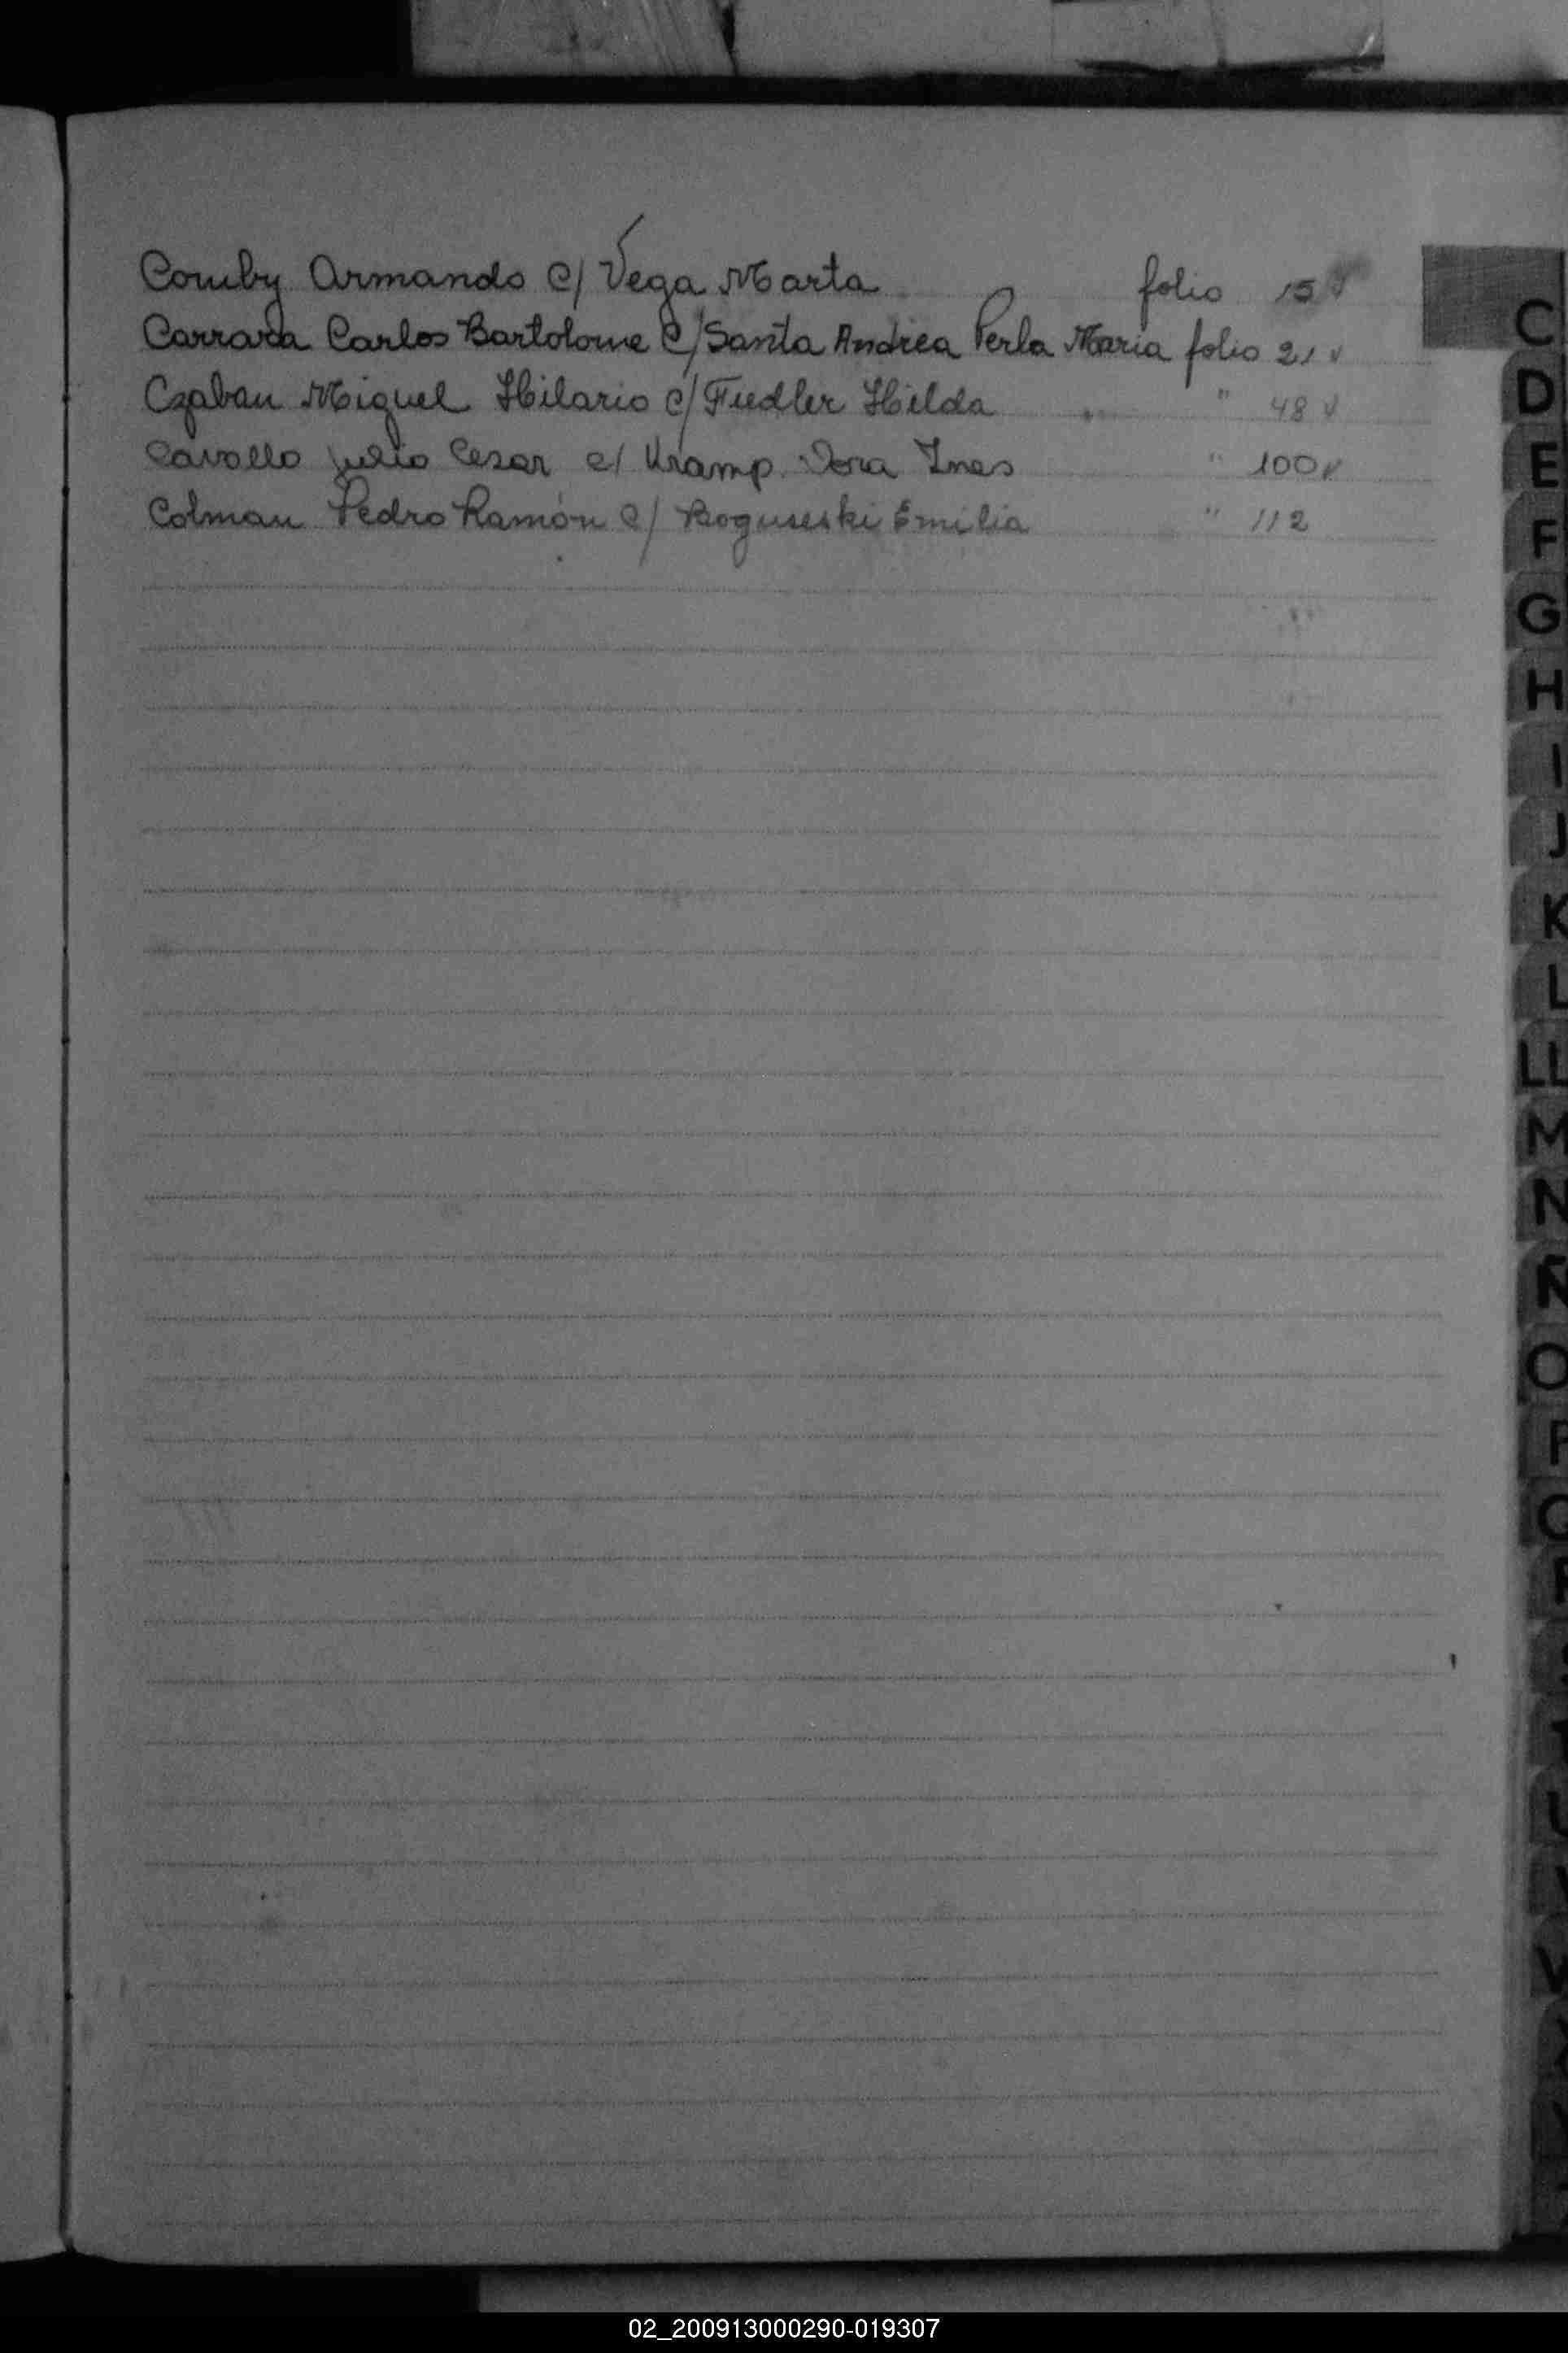 Comby Armando c/ Vega Marta folio 15 v
Carrara Carlos Bartolome c/ Santa Andrea Perla Maria folio 21 v
Czaban Miguel Hilario c/ Fiedler Hilda " 48 v
Cavallo Julio Cesar c/ Kramp Dora Ines " 100 v
Colman Pedro Ramón c/ Boguseski Emilia " 112
C
D
E
F
G
H
I
J
K
L
LL
M
N
Ñ
O
P
Q
R
T
U
V
02_200913000290-019307